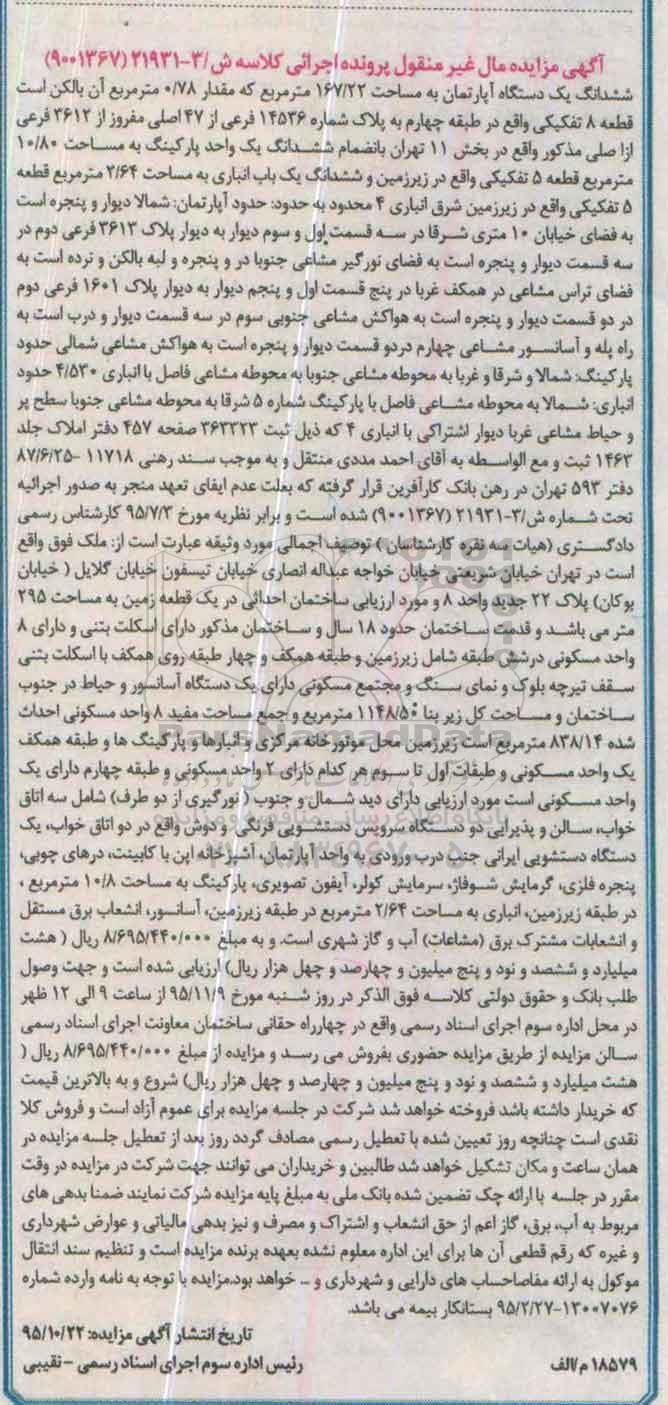 آگهی مزایده مال غیر منقول پرونده اجرائی کلاسه ش/۳-۲۱۹۳۱ (۹۰۰۱۳۶۷)
ششدانگ یک دستگاه آپارتمان به مساحت ۱۶۷/۲۲ مترمربع که مقدار ۰/۷۸ مترمربع آن بالکن است
قطعه ۸ تفکیکی واقع در طبقه چهارم به پلاک شماره ۱۴۵۳۶ فرعی از ۴۷ اصلی مفروز از ۳۶۱۲ فرعی
ازا صلی مذکور واقع در بخش ۱۱ تهران بانضمام ششدانگ یک واحد پارکینگ به مساحت ۱۰/۸۰
مترمربع قطعه ۵ تفکیکی واقع در زیرزمین و ششدانگ یک باب انباری به مساحت ۲/۶۴ مترمربع قطعه
۵ تفکیکی واقع در زیرزمین شرق انباری ۴ محدود به حدود: حدود آپارتمان: شمالا دیوار و پنجره است
به فضای خیابان ۱۰ متری شرقا در سه قسمت اول و سوم دیوار به دیوار پلاک ۳۶۱۳ فرعی دوم در
سه قسمت دیوار و پنجره است به فضای نورگیر مشاعی جنوبا در و پنجره و لبه بالکن و نرده است به
فضای تراس مشاعی در همکف غربا در پنج قسمت اول و پنجم دیوار به دیوار پلاک ۱۶۰۱ فرعی دوم
در دو قسمت دیوار و پنجره است به هواکش مشاعی جنوبی سوم در سه قسمت دیوار و درب است به
راه پله و آسانسور مشاعی چهارم دردو قسمت دیوار و پنجره است به هواکش مشاعی شمالی حدود
پارکینگ: شمالا و شرقا و غربا به محوطه مشاعی جنوبا به محوطه مشاعی فاصل با انباری ۴/۵۳۰ حدود
انباری: شمالا به محوطه مشاعی فاصل با پارکینگ شماره ۵ شرقا به محوطه مشاعی جنوبا سطح پر
و حیاط مشاعی غربا دیوار اشتراکی با انباری ۴ که ذیل ثبت ۳۶۲۳۲۳ صفحه ۴۵۷ دفتر املاک جلد
۱۴۶۳ ثبت و مع الواسطه به آقای احمد مددی منتقل و به موجب سند رهنی ۱۱۷۱۸ -۸۷/۶/۲۵
دفتر ۵۹۳ تهران در رهن بانک کارآفرین قرار گرفته که بعلت عدم ایفای تعهد منجر به صدور اجرائیه
تحت شماره ش/۳-۲۱۹۳۱ (۹۰۰۱۳۶۷) شده است و برابر نظریه مورخ ۹۵/۷/۳ کارشناس رسمی
دادگستری (هیات سه نفره کارشناسان) توصیف اجمالی مورد وثیقه عبارت است از: ملک فوق واقع
است در تهران خیابان شریعتی خیابان خواجه عبداله انصاری خیابان تیسفون خیابان گلایل ( خیابان
بوکان) پلاک ۲۲ جدید واحد ۸ و مورد ارزیابی ساختمان احداثی در یک قطعه زمین به مساحت ۲۹۵
متر می باشد و قدمت ساختمان حدود ۱۸ سال و ساختمان مذکور دارای اسکلت بتنی و دارای ۸
واحد مسکونی درشش طبقه شامل زیرزمین و طبقه همکف و چهار طبقه روی همکف با اسکلت بتنی
سقف تیرچه بلوک و نمای سنگ و مجتمع مسکونی دارای یک دستگاه آسانسور و حیاط در جنوب
ساختمان و مساحت کل زیر بنا ۱۱۴۸/۵۰ مترمربع و جمع مساحت مفید ۸ واحد مسکونی احداث
شده ۸۳۸/۱۴ مترمربع است زیرزمین محل موتورخانه مرکزی و انبارها و پارکینگ ها و طبقه همکف
یک واحد مسکونی و طبقات اول تا سوم هر کدام دارای ۲ واحد مسکونی و طبقه چهارم دارای یک
واحد مسکونی است مورد ارزیابی دارای دید شمال و جنوب ( نورگیری از دو طرف) شامل سه اتاق
خواب، سالن و پذیرایی دو دستگاه سرویس دستشویی فرنگی و دوش واقع در دو اتاق خواب، یک
دستگاه دستشویی ایرانی جنب درب ورودی به واحد آپارتمان، آشپزخانه اپن با کابینت، درهای چوبی،
پنجره فلزی، گرمایش شوفاژ، سرمایش کولر، آیفون تصویری، پارکینگ به مساحت ۱۰/۸ مترمربع ،
در طبقه زیرزمین، انباری به مساحت ۲/۶۴ مترمربع در طبقه زیرزمین، آسانسور، انشعاب برق مستقل
و انشعابات مشترک برق (مشاعات) آب و گاز شهری است. و به مبلغ ۸/۶۹۵/۴۴۰/۰۰۰ ریال ( هشت
میلیارد و ششصد و نود و پنج میلیون و چهارصد و چهل هزار ریال) ارزیابی شده است و جهت وصول
طلب بانک و حقوق دولتی کلاسه فوق الذکر در روز شنبه مورخ ۹۵/۱۱/۹ از ساعت ۹ الی ۱۲ ظهر
در محل اداره سوم اجرای اسناد رسمی واقع در چهارراه حقانی ساختمان معاونت اجرای اسناد رسمی
سالن مزایده از طریق مزایده حضوری بفروش می رسد و مزایده از مبلغ ۸/۶۹۵/۴۴۰/۰۰۰ ریال (
هشت میلیارد و ششصد و نود و پنج میلیون و چهارصد و چهل هزار ریال) شروع و به بالاترین قیمت
که خریدار داشته باشد فروخته خواهد شد شرکت در جلسه مزایده برای عموم آزاد است و فروش کلا
نقدی است چنانچه روز تعیین شده با تعطیل رسمی مصادف گردد روز بعد از تعطیل جلسه مزایده در
همان ساعت و مکان تشکیل خواهد شد طالبین و خریداران می توانند جهت شرکت در مزایده در وقت
مقرر در جلسه با ارائه چک تضمین شده بانک ملی به مبلغ پایه مزایده شرکت نمایند ضمنا بدهی های
مربوط به آب، برق، گاز اعم از حق انشعاب و اشتراک و مصرف و نیز بدهی مالیاتی و عوارض شهرداری
و غیره که رقم قطعی آن ها برای این اداره معلوم نشده بعهده برنده مزایده است و تنظیم سند انتقال
موکول به ارائه مفاصاحساب های دارایی و شهرداری و ... خواهد بود.مزایده با توجه به نامه وارده شماره
۱۳۰۰۷۰۷۶-۹۵/۲/۲۷ بستانکار بیمه می باشد.
تاریخ انتشار آگهی مزایده: ۹۵/۱۰/۲۲
۱۸۵۷۹ م/الف رئیس اداره سوم اجرای اسناد رسمی - نقیبی